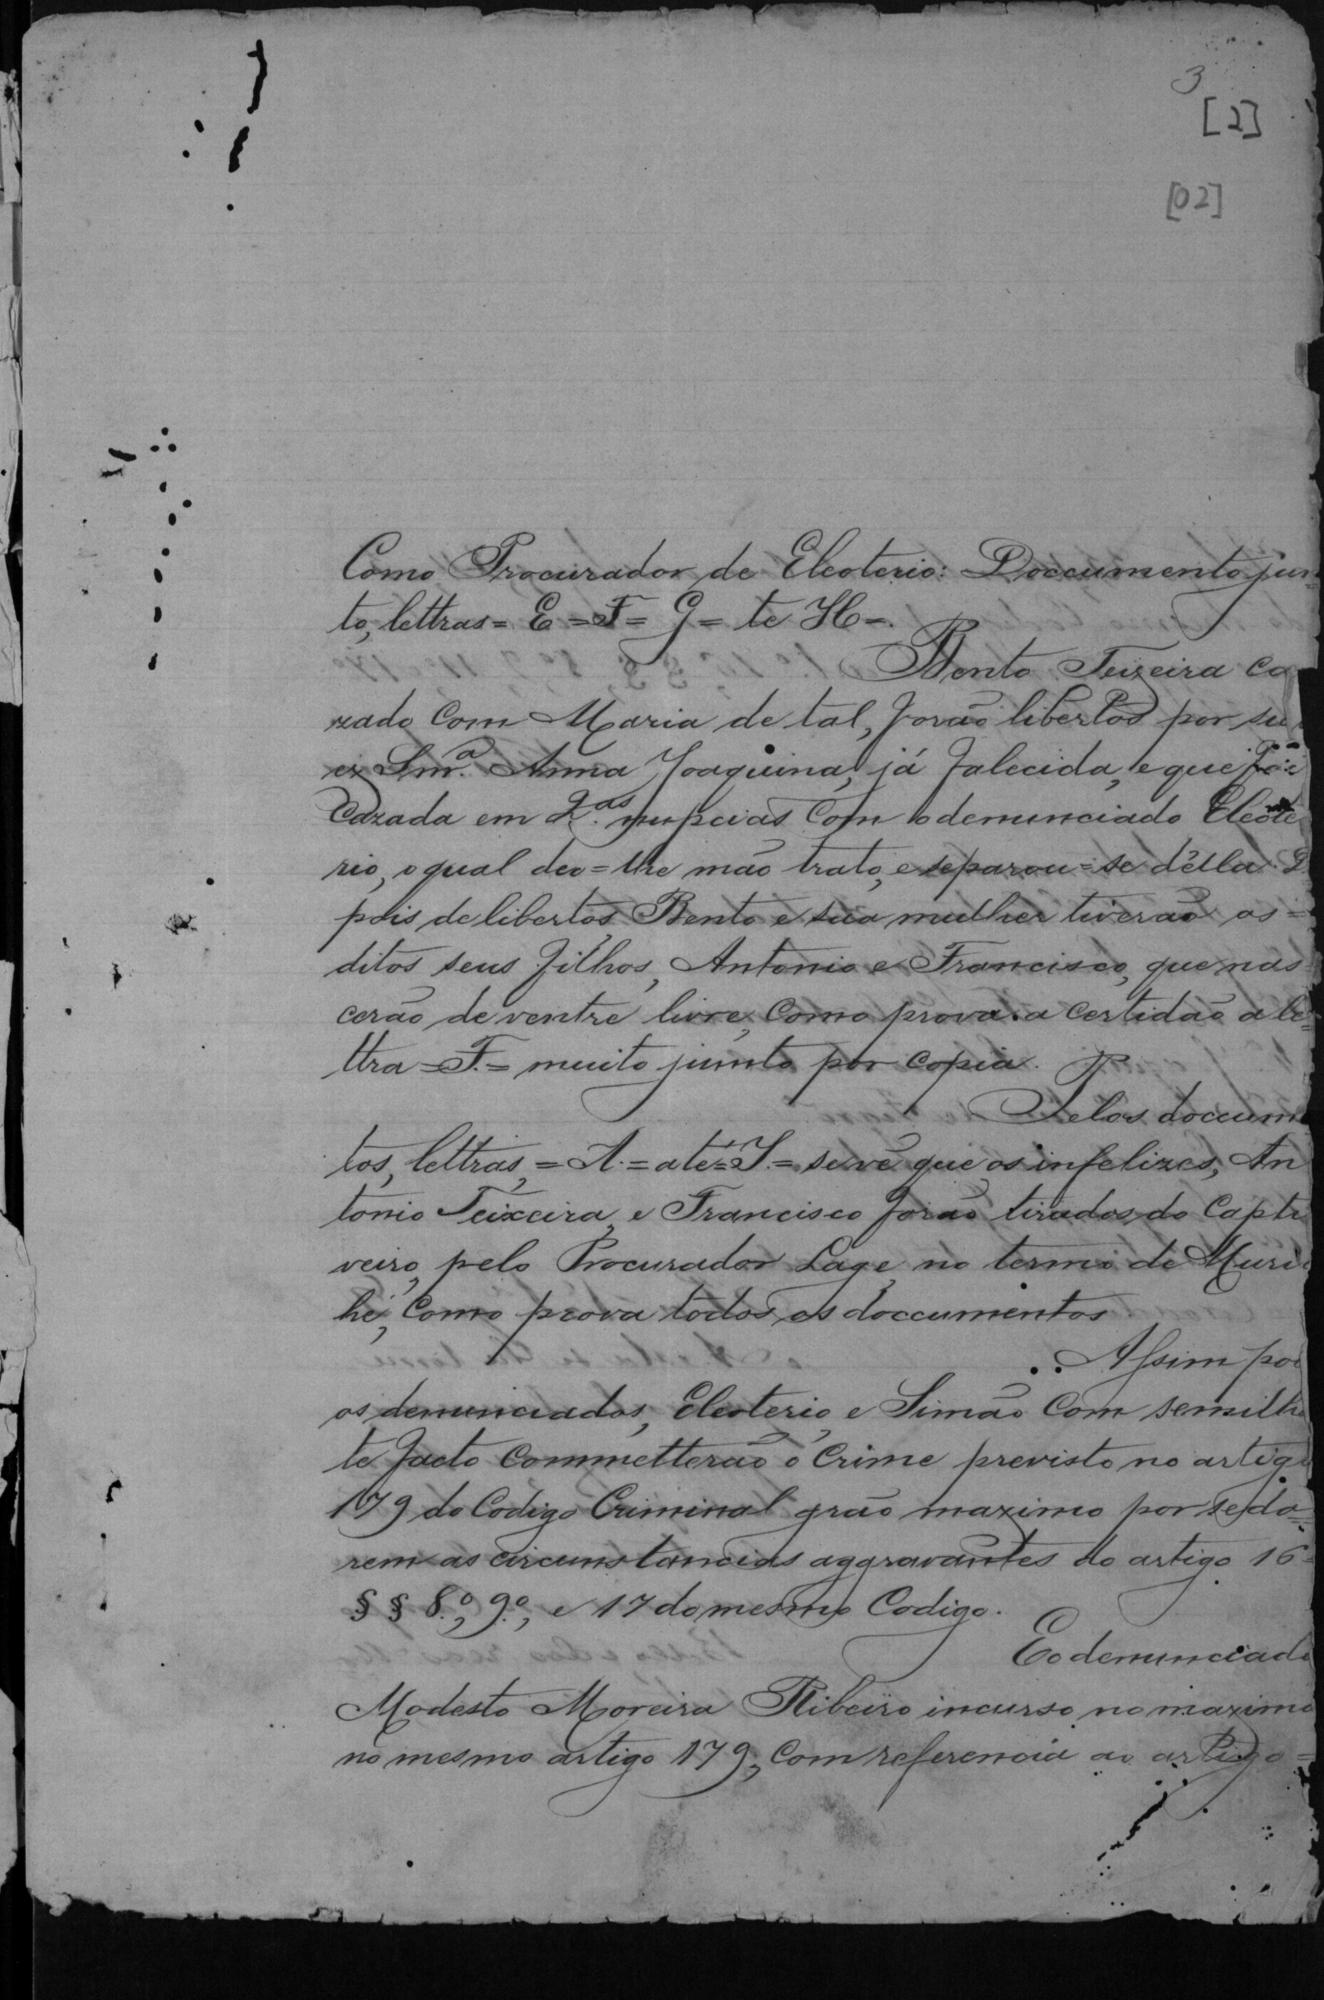 3
[2]
[02]
Como Procurador de Eleoterio: Doccumento jun
to, lettras = E = F = G = te H =.
Bento Teixeira ca
zado com Maria de tal, forão libertos por su
ex Snrª. Anna Joaquina, já falecida, e que foi
Cazada em 2.as nupcias com o denunciado Eleote
rio, o qual deo=lhe máo trato, e separou=se d'élla. D
pois de libertos, Bento e sua mulher tiverão os=
ditos seus filhos, Antonio e Francisco, que nas=
cerão de ventre livre, como prova a certidão a le=
ttra = F. = muito junto por copia.
Pelos docum
tos, lettras, = A. = até = I. = se vê que os infelizes, An
tonio Teixeira, e Francisco forão tirados do Capti
veiro, pelo Procurador Lage, no termo de Muri
hé, como prova todos os doccumentos
Assim poi
os denunciados, Eleoterio, e Simão com semilha
te facto commetterão o crime previsto no artigo
179 do Codigo Criminal grão maximo por se da=
rem as circunstancias aggravantes do artigo 16=
§ § 8.º, 9.º, e 17 do mesmo Codigo.
E o denunciado
Modesto Moreira Ribeiro incurso no maximo
no mesmo artigo 179, com referencia ao artigo =